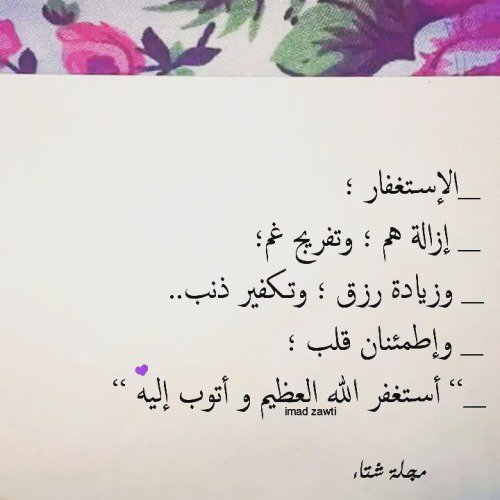 _الإستغفار ؛
_ إزالة هم ؛ وتفريج غم؛
_ وزيادة رزق ؛ وتكفير ذنب..
_ وإطمئنان قلب ؛
_“ أستغفر الله العظيم و أتوب إليه “
imad zawti
مجلة شتاء